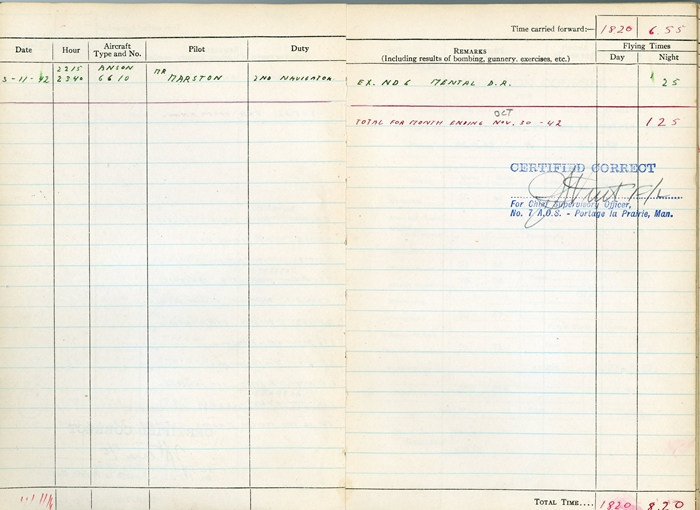 Time carried forward:— 1820 6.55
Date Hour Aircraft Type and No. Pilot Duty REMARKS (Including results of bombing, gunnery, exercises, etc.) Flying Times Day Night
2215 ANSON MR
3-11-42 2340 6610 MARSTON 2ND NAVIGATOR EX. ND 6 MENTAL D.R. 1 25
OCT
TOTAL FOR MONTH ENDING NOV. 30 -42 1 25
CERTIFIED CORRECT
For Chief Supervisory Officer,
No. 7 A.O.S. - Portage la Prairie, Man.
TOTAL TIME.... 1820 8.20